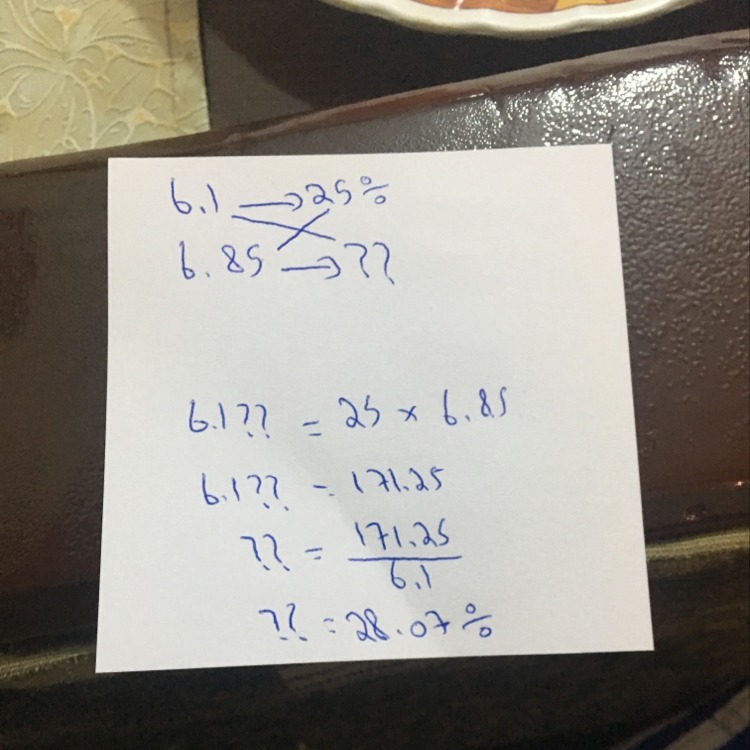 6.1 → 25%
6.85 → ??
6.1?? = 25 × 6.85
6.1?? = 171.25
?? = 171.25 / 6.1
?? = 28.07%